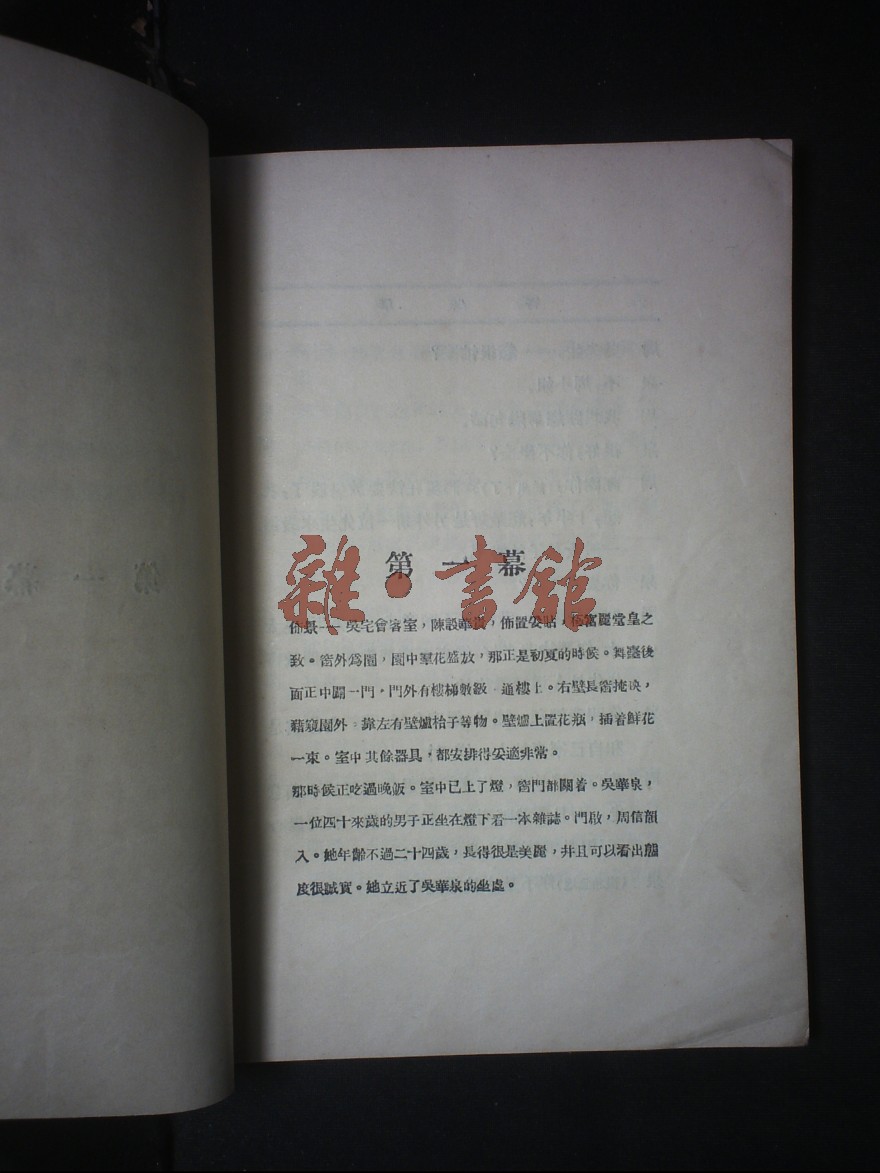 第一幕
雜·書館
佈景——吳宅會客室，陳設華貴，佈置妥貼，極富麗堂皇之
致。窗外爲園，園中羣花盛放，那正是初夏的時候。舞臺後
面正中開一門，門外有樓梯數級 通樓上。右壁長窗掩映，
藉窺園外 靠左有壁爐枱子等物。壁爐上置花瓶，插着鮮花
一束。室中其餘器具，都安排得妥適非常。
那時候正吃過晚飯。室中已上了燈，窗門都關着。吳華泉，
一位四十來歲的男子正坐在燈下看一本雜誌。門啟，周信韻
入。她年齡不過二十四歲，長得很是美麗，并且可以看出態
度很誠實。她立近了吳華泉的坐處。